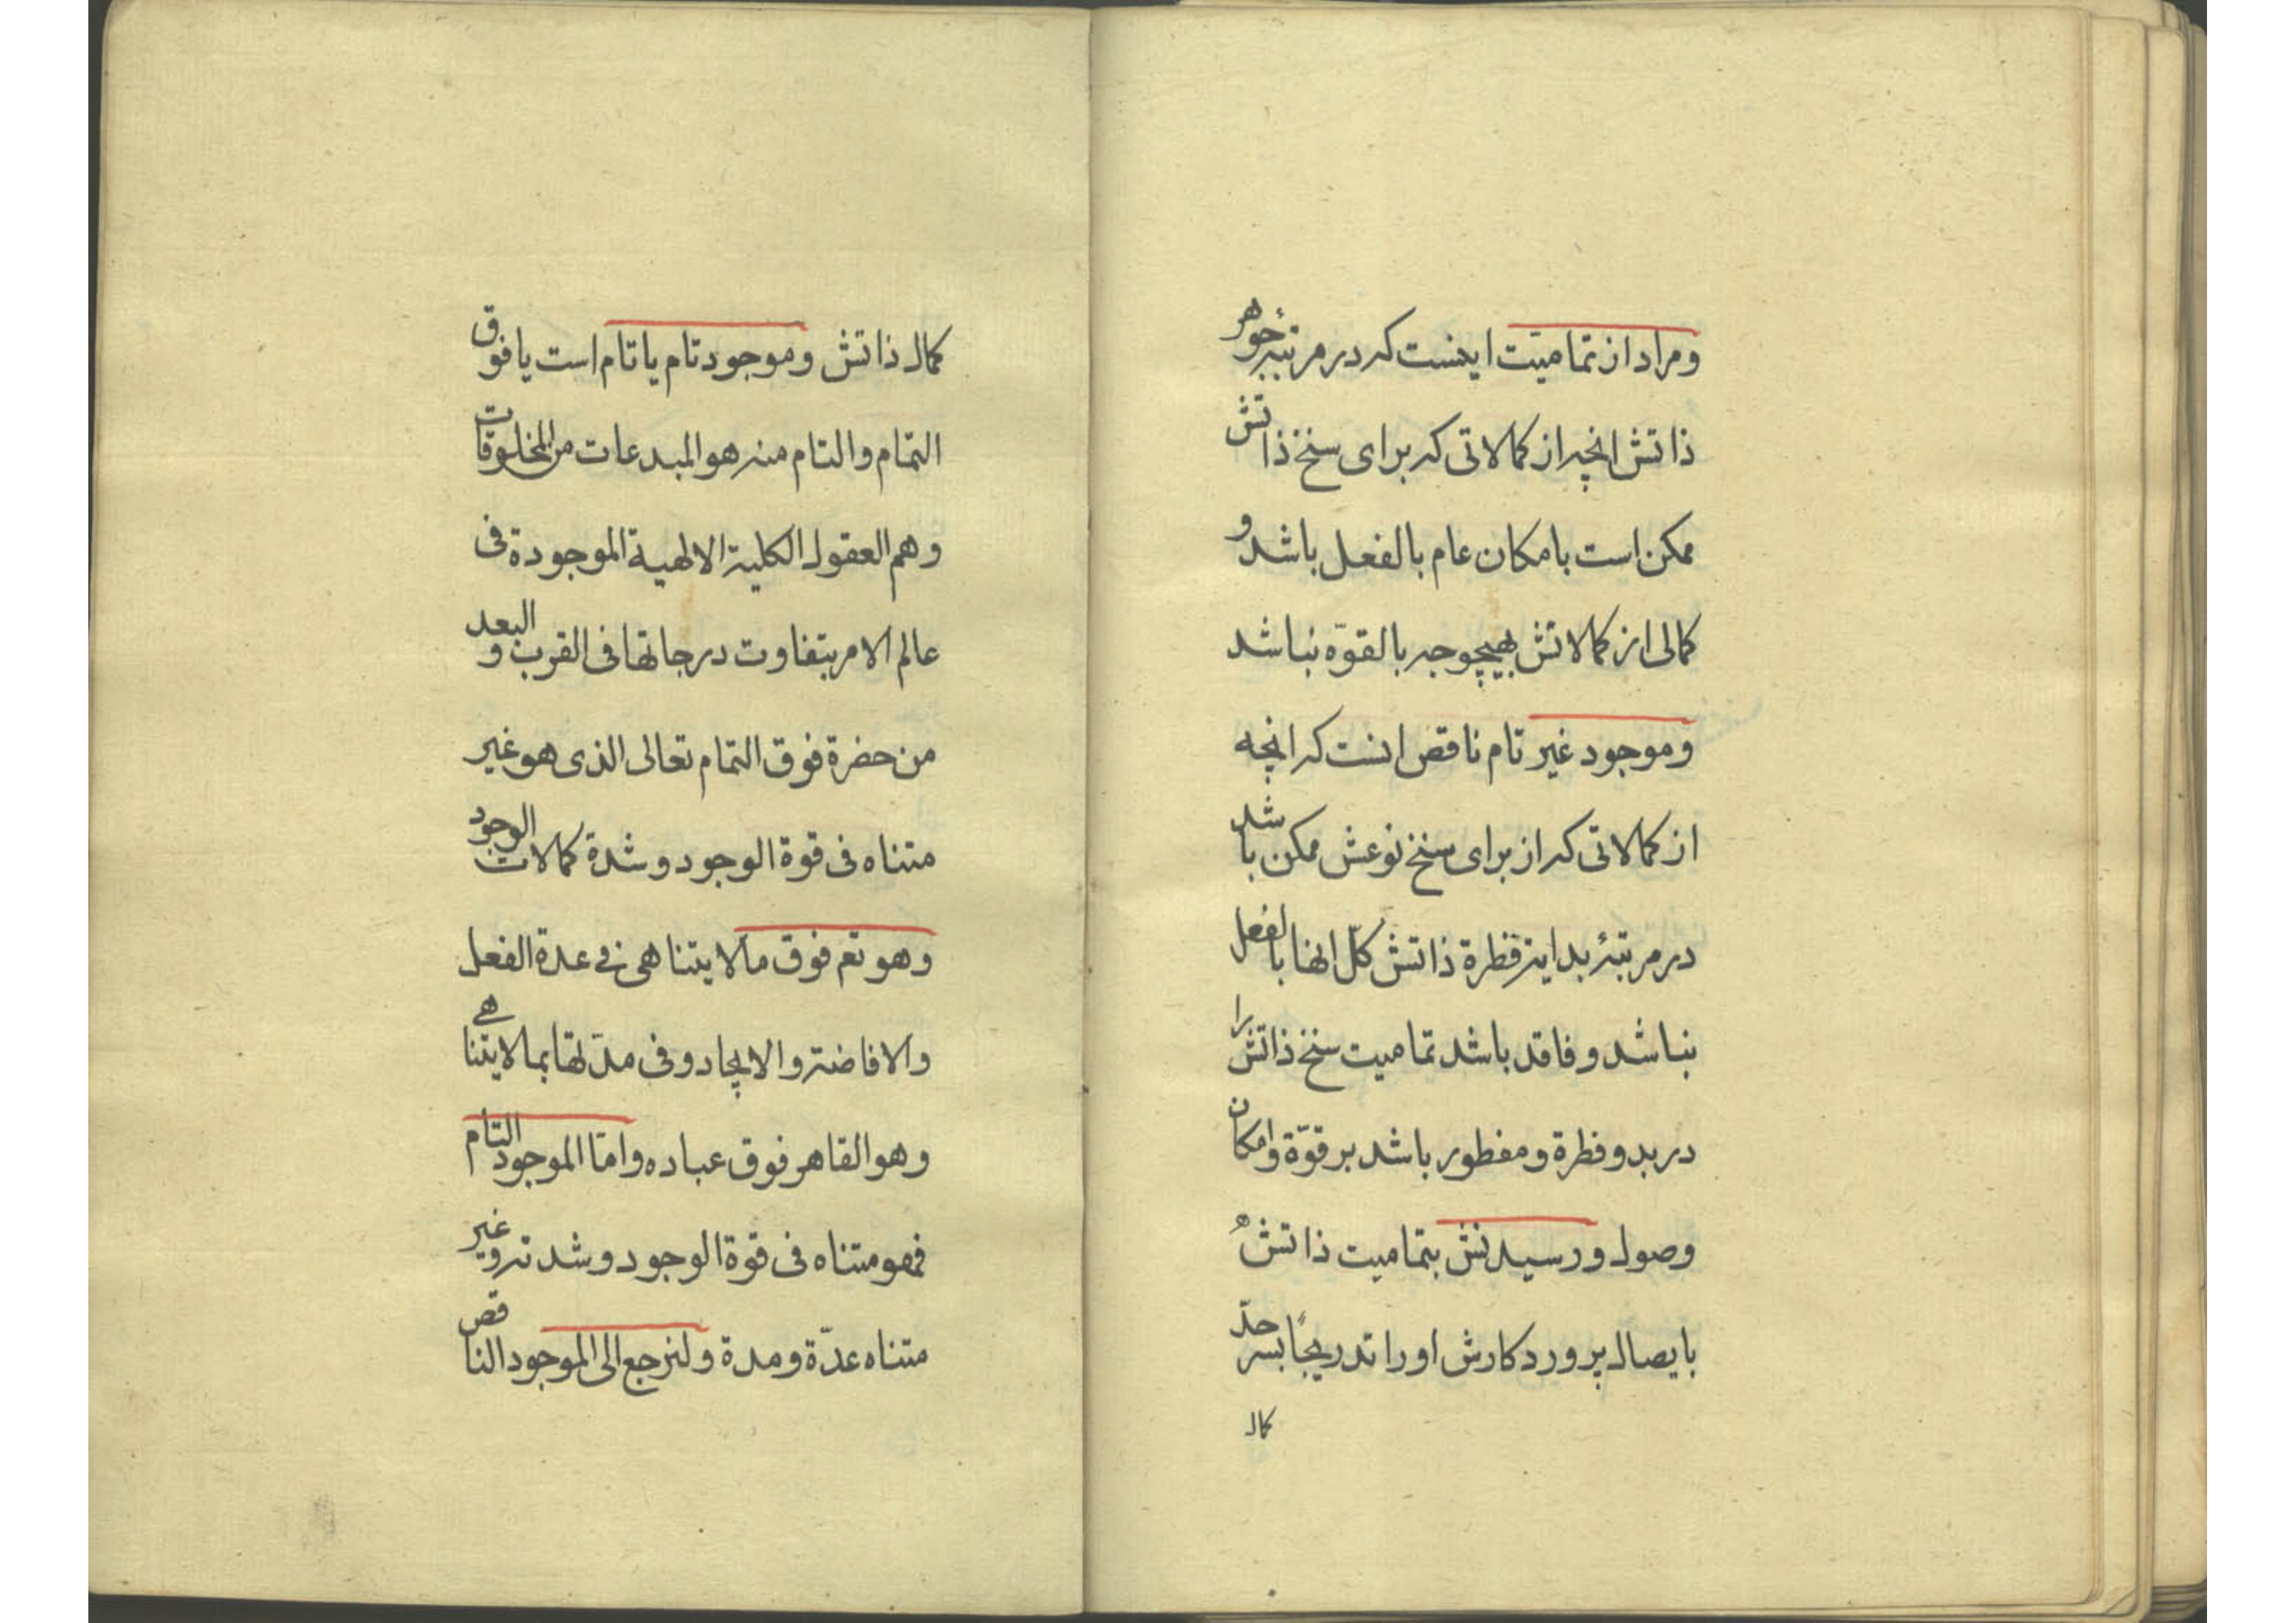 ومراد از تمامیّت اینست که در مرتبهٔ جوهر
ذاتش انچه از کمالاتی که برای سنخ ذاتش
ممکن است بامکان عام بالفعل باشد و
کمالی از کمالاتش بهیچوجه بالقوّه نباشد
وموجود غیر تام ناقص انست که انچه
از کمالاتی که از برای سنخ نوعش ممکن باشد
در مرتبهٔ بدایة فطرة ذاتش کلّ انها بالفعل
نباشد و فاقد باشد تمامیت سنخ ذاتش را
در بدو فطرة و مفطور باشد بر قوّة وامکان
وصول و رسیدنش بتمامیت ذاتش
بایصال پروردکارش او را تدریجًا بسر حدّ
کمال
کمال ذاتش وموجود تام یا تام است یا فوق
التمام والتام منه هو المبدعات من المخلوقات
وهم العقول الکلیة الالهیة الموجودة فی
عالم الامر بتفاوت درجاتها فی القرب و البعد
من حضرة فوق التمام تعالی الذی هو غیر
متناه فی قوة الوجود و شدة کمالات الوجود
وهو تع‍م فوق ما لا یتناهی فی عدة الفعل
والافاضة والایجاد و فی مدّتها بما لا یتناهی
وهو القاهر فوق عباده وامّا الموجود التام
فهو متناه فی قوة الوجود و شدته وغیر
متناه عدّة ومدة ولنرجع الی الموجود الناقص